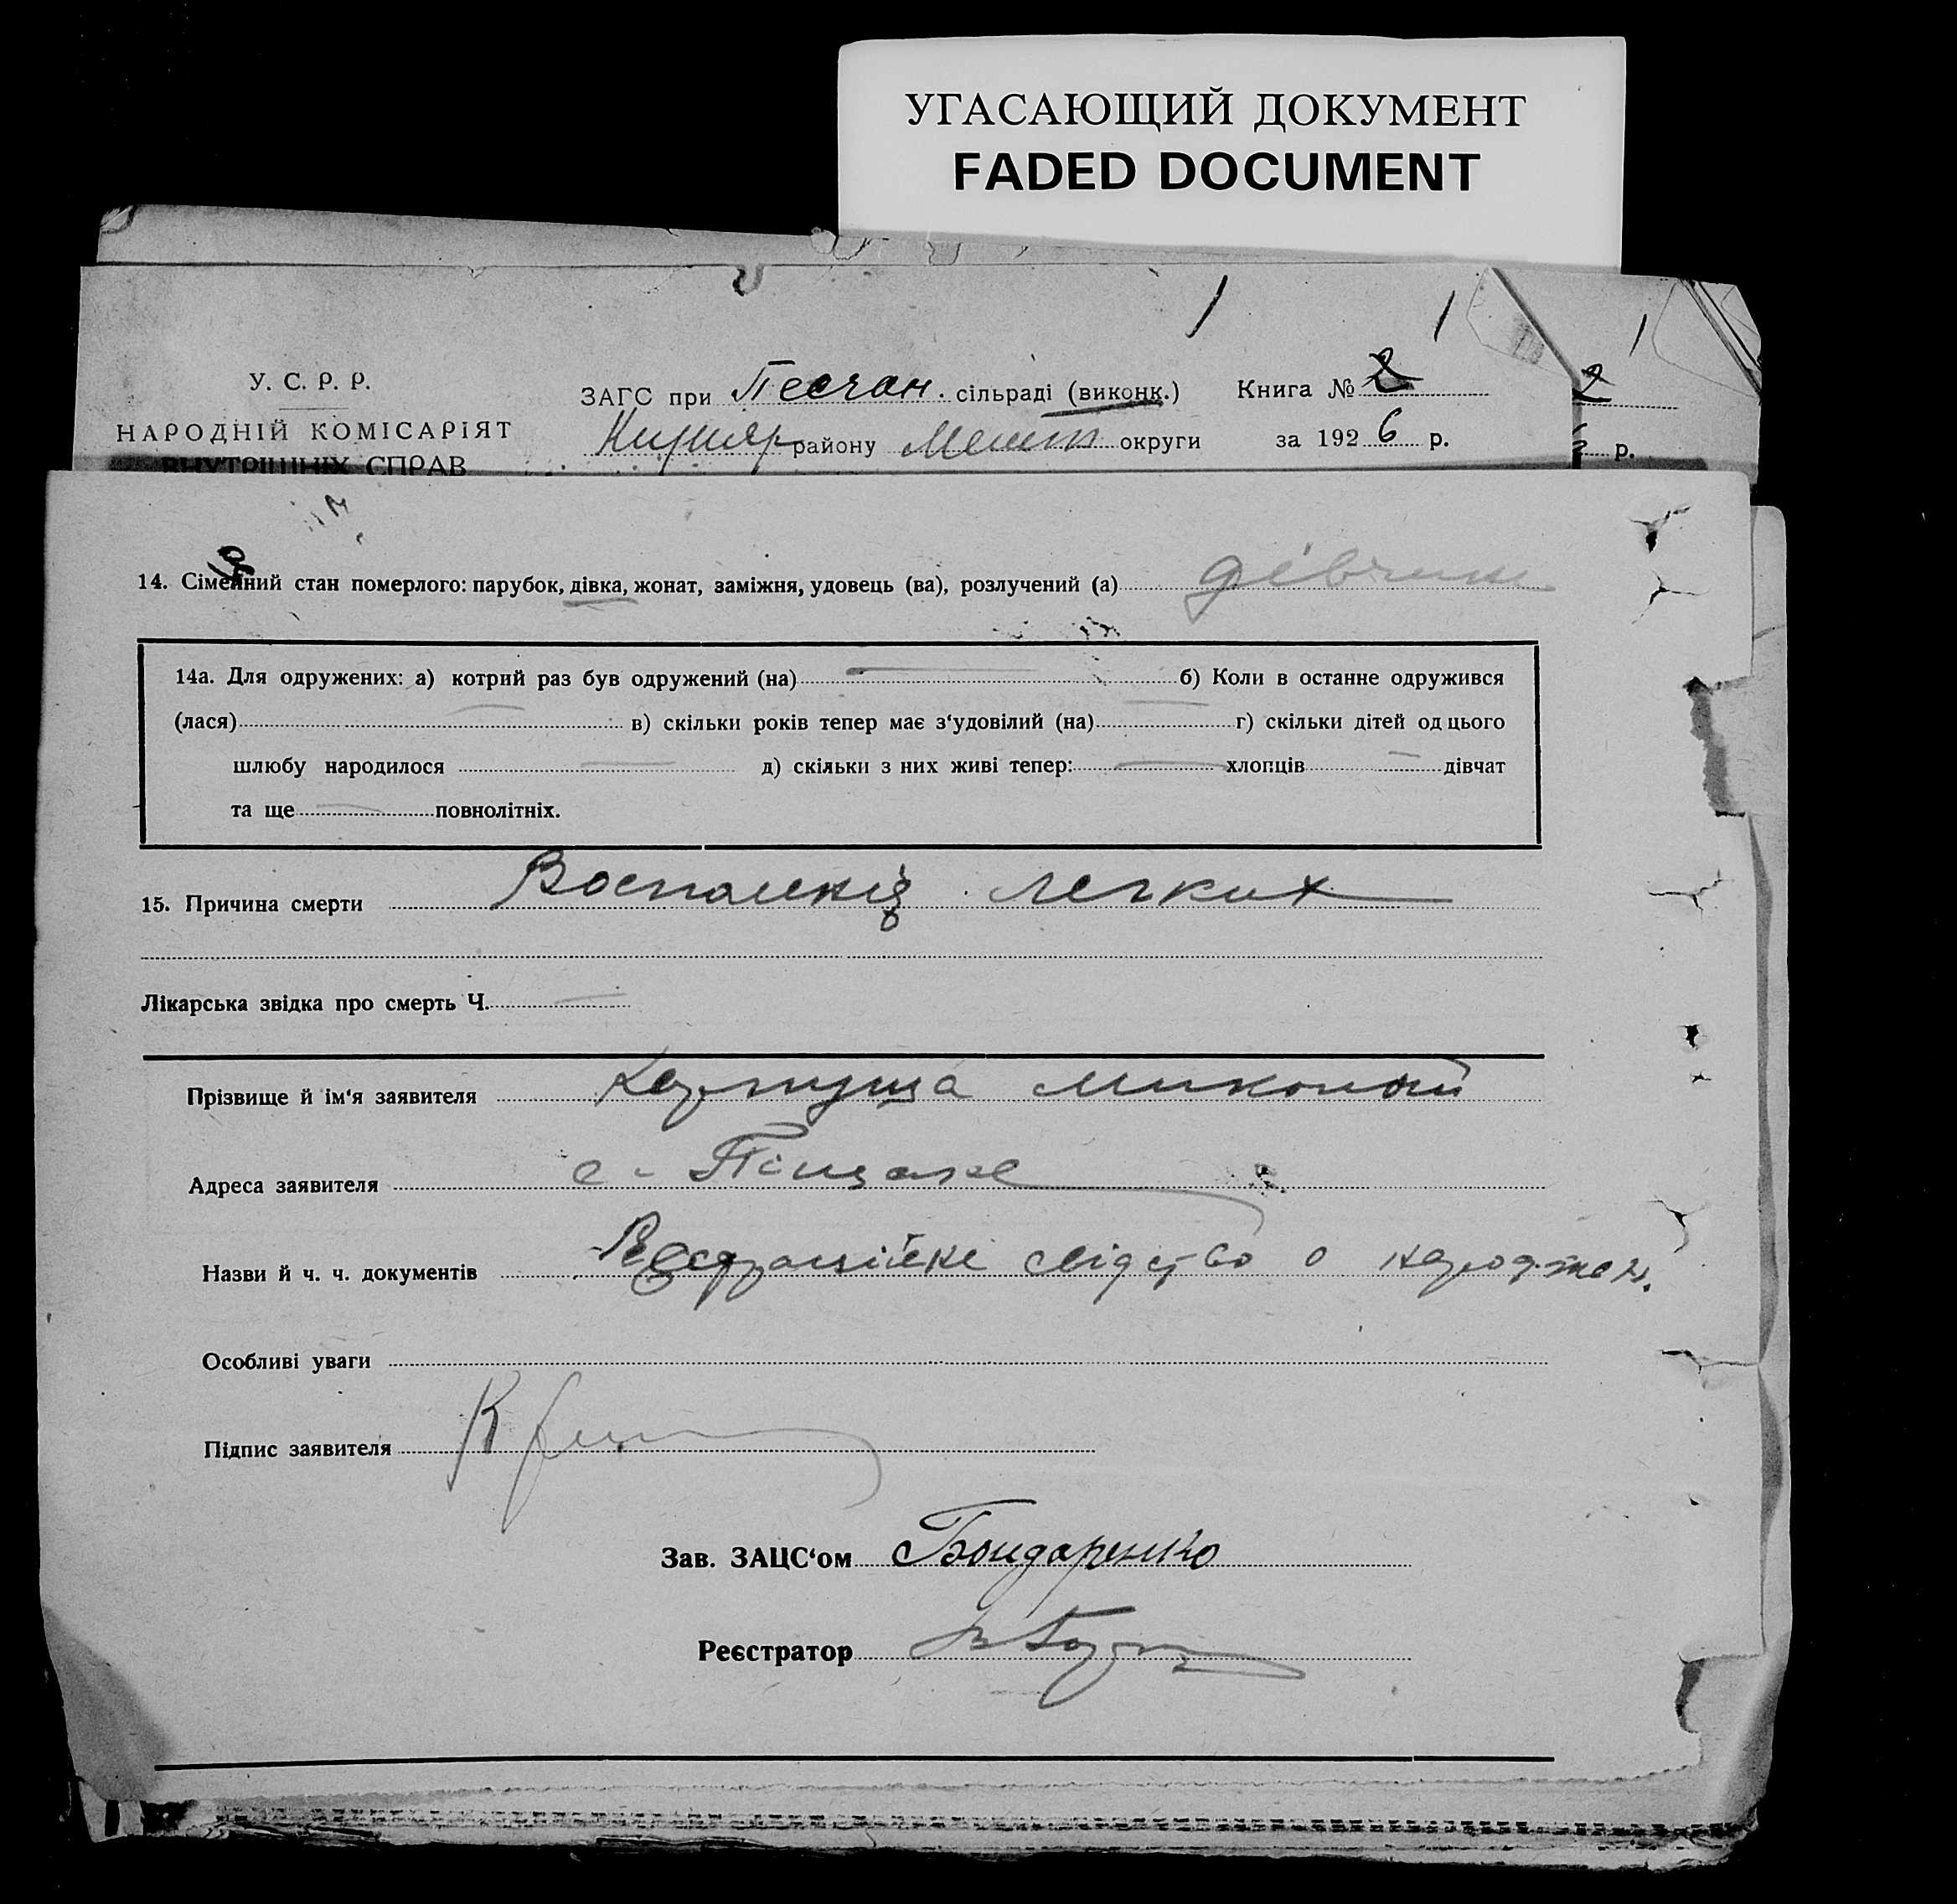 УГАСАЮЩИЙ ДОКУМЕНТ
FADED DOCUMENT
У. С. Р. Р.
НАРОДНІЙ КОМІСАРІЯТ
ВНУТРІШНІХ СПРАВ
ЗАГС при Песчан. сільраді (виконк.) Книга № 2
району Мелит округи за 1926 р.
2
р.
14. Сімейний стан померлого: парубок, дівка, жонат, заміжня, удовець (ва), розлучений (а) дівчина
14а. Для одружених: а) котрий раз був одружений (на) б) Коли в останне одружився
(лася) в) скільки років тепер має з‘удовілий (на) г) скільки дітей од цього
шлюбу народилося д) скільки з них живі тепер: хлопців дівчат
та ще повнолітніх.
15. Причина смерти Воспаленія легких
Лікарська звідка про смерть Ч.
Прізвище й ім‘я заявителя Миколай
Адреса заявителя с. Піщане
Назви й ч. ч. документів свідство о народжен.
Особливі уваги
Підпис заявителя
Зав. ЗАЦС‘ом Бондаренко
Реєстратор